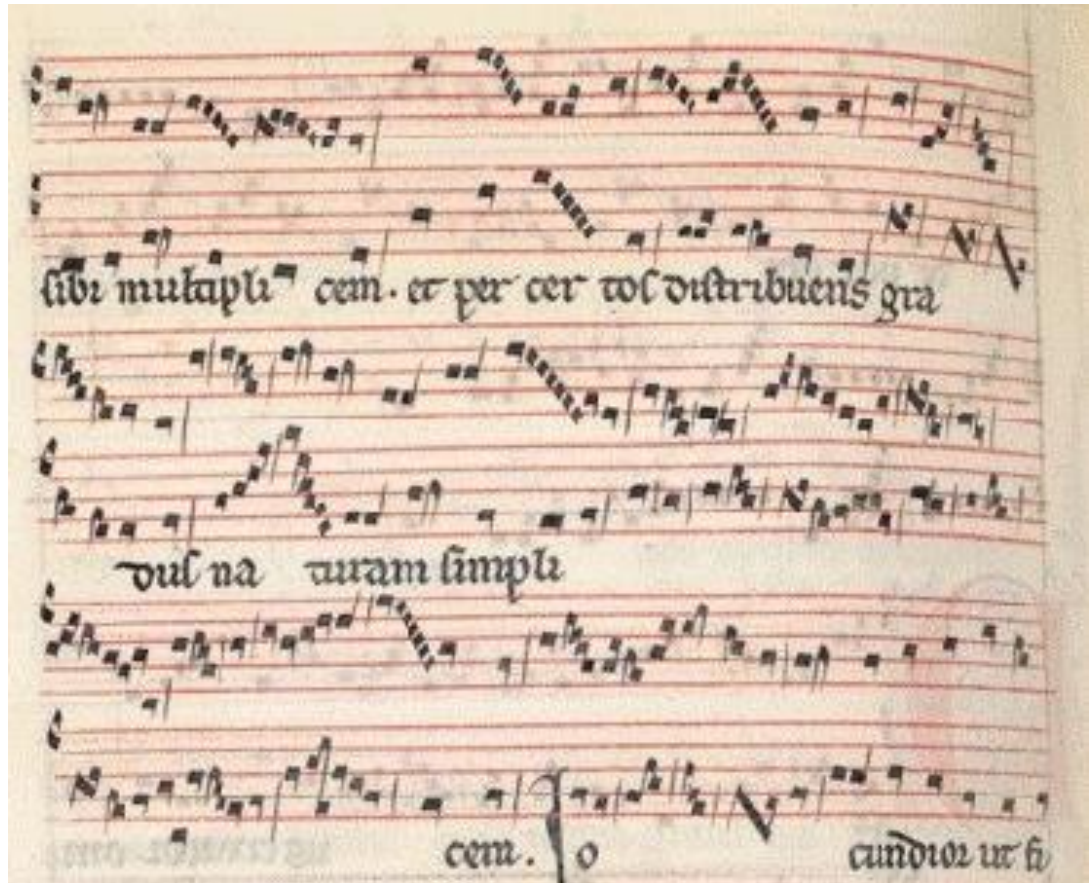 sibi multipli cem. et per cer tos distribuens gra
dus na turam simpli
cem. Io cundior ut fi